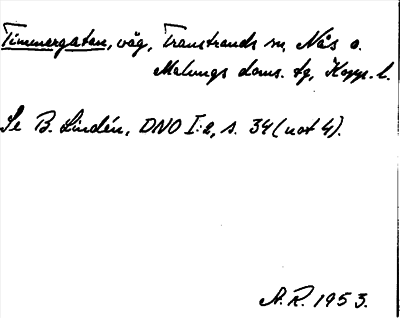 Timmergatan, väg, Transtrands sn, Nås o.
Malungs doms. tg, Kopp. l.
Se B. Lindén, DNO I:2, s. 34 (not 4).
A.R. 1953.